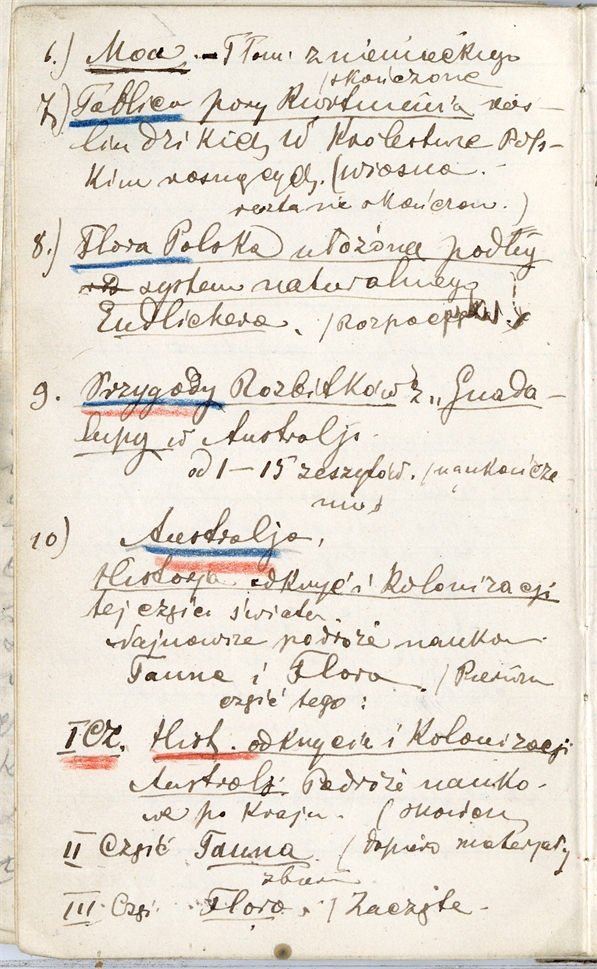 6.) Moa. - Tłom: z niemieckiego
/skończone
7.) Tablica pory kwitnienia roś-
lin dzikich w Królestwie Pols-
kim rosnących. (wiosna -
reszta nie skończon.)
8.) Flora Polska ułożona podług
systemu naturalnego
Endlichera. /Rozpoczęta
9. Przygody Rozbitków z „Guada-
lupy w Australji.
od 1-15 zeszytów. /na ukończe
niu
10) Australja,
Historja odkryć i kolonizacji
tej części świata.
Najnowsze podróże naukow.
Fauna i Flora. /Pierwsza
część tego:
I CZ. Hist. odkrycia i Kolonizacji
Australji. Podróże nauko-
we po kraju. (skończon
II Część Fauna. (dopiero materjały
zbieram
III Częś. Flora. /Zaczęte -